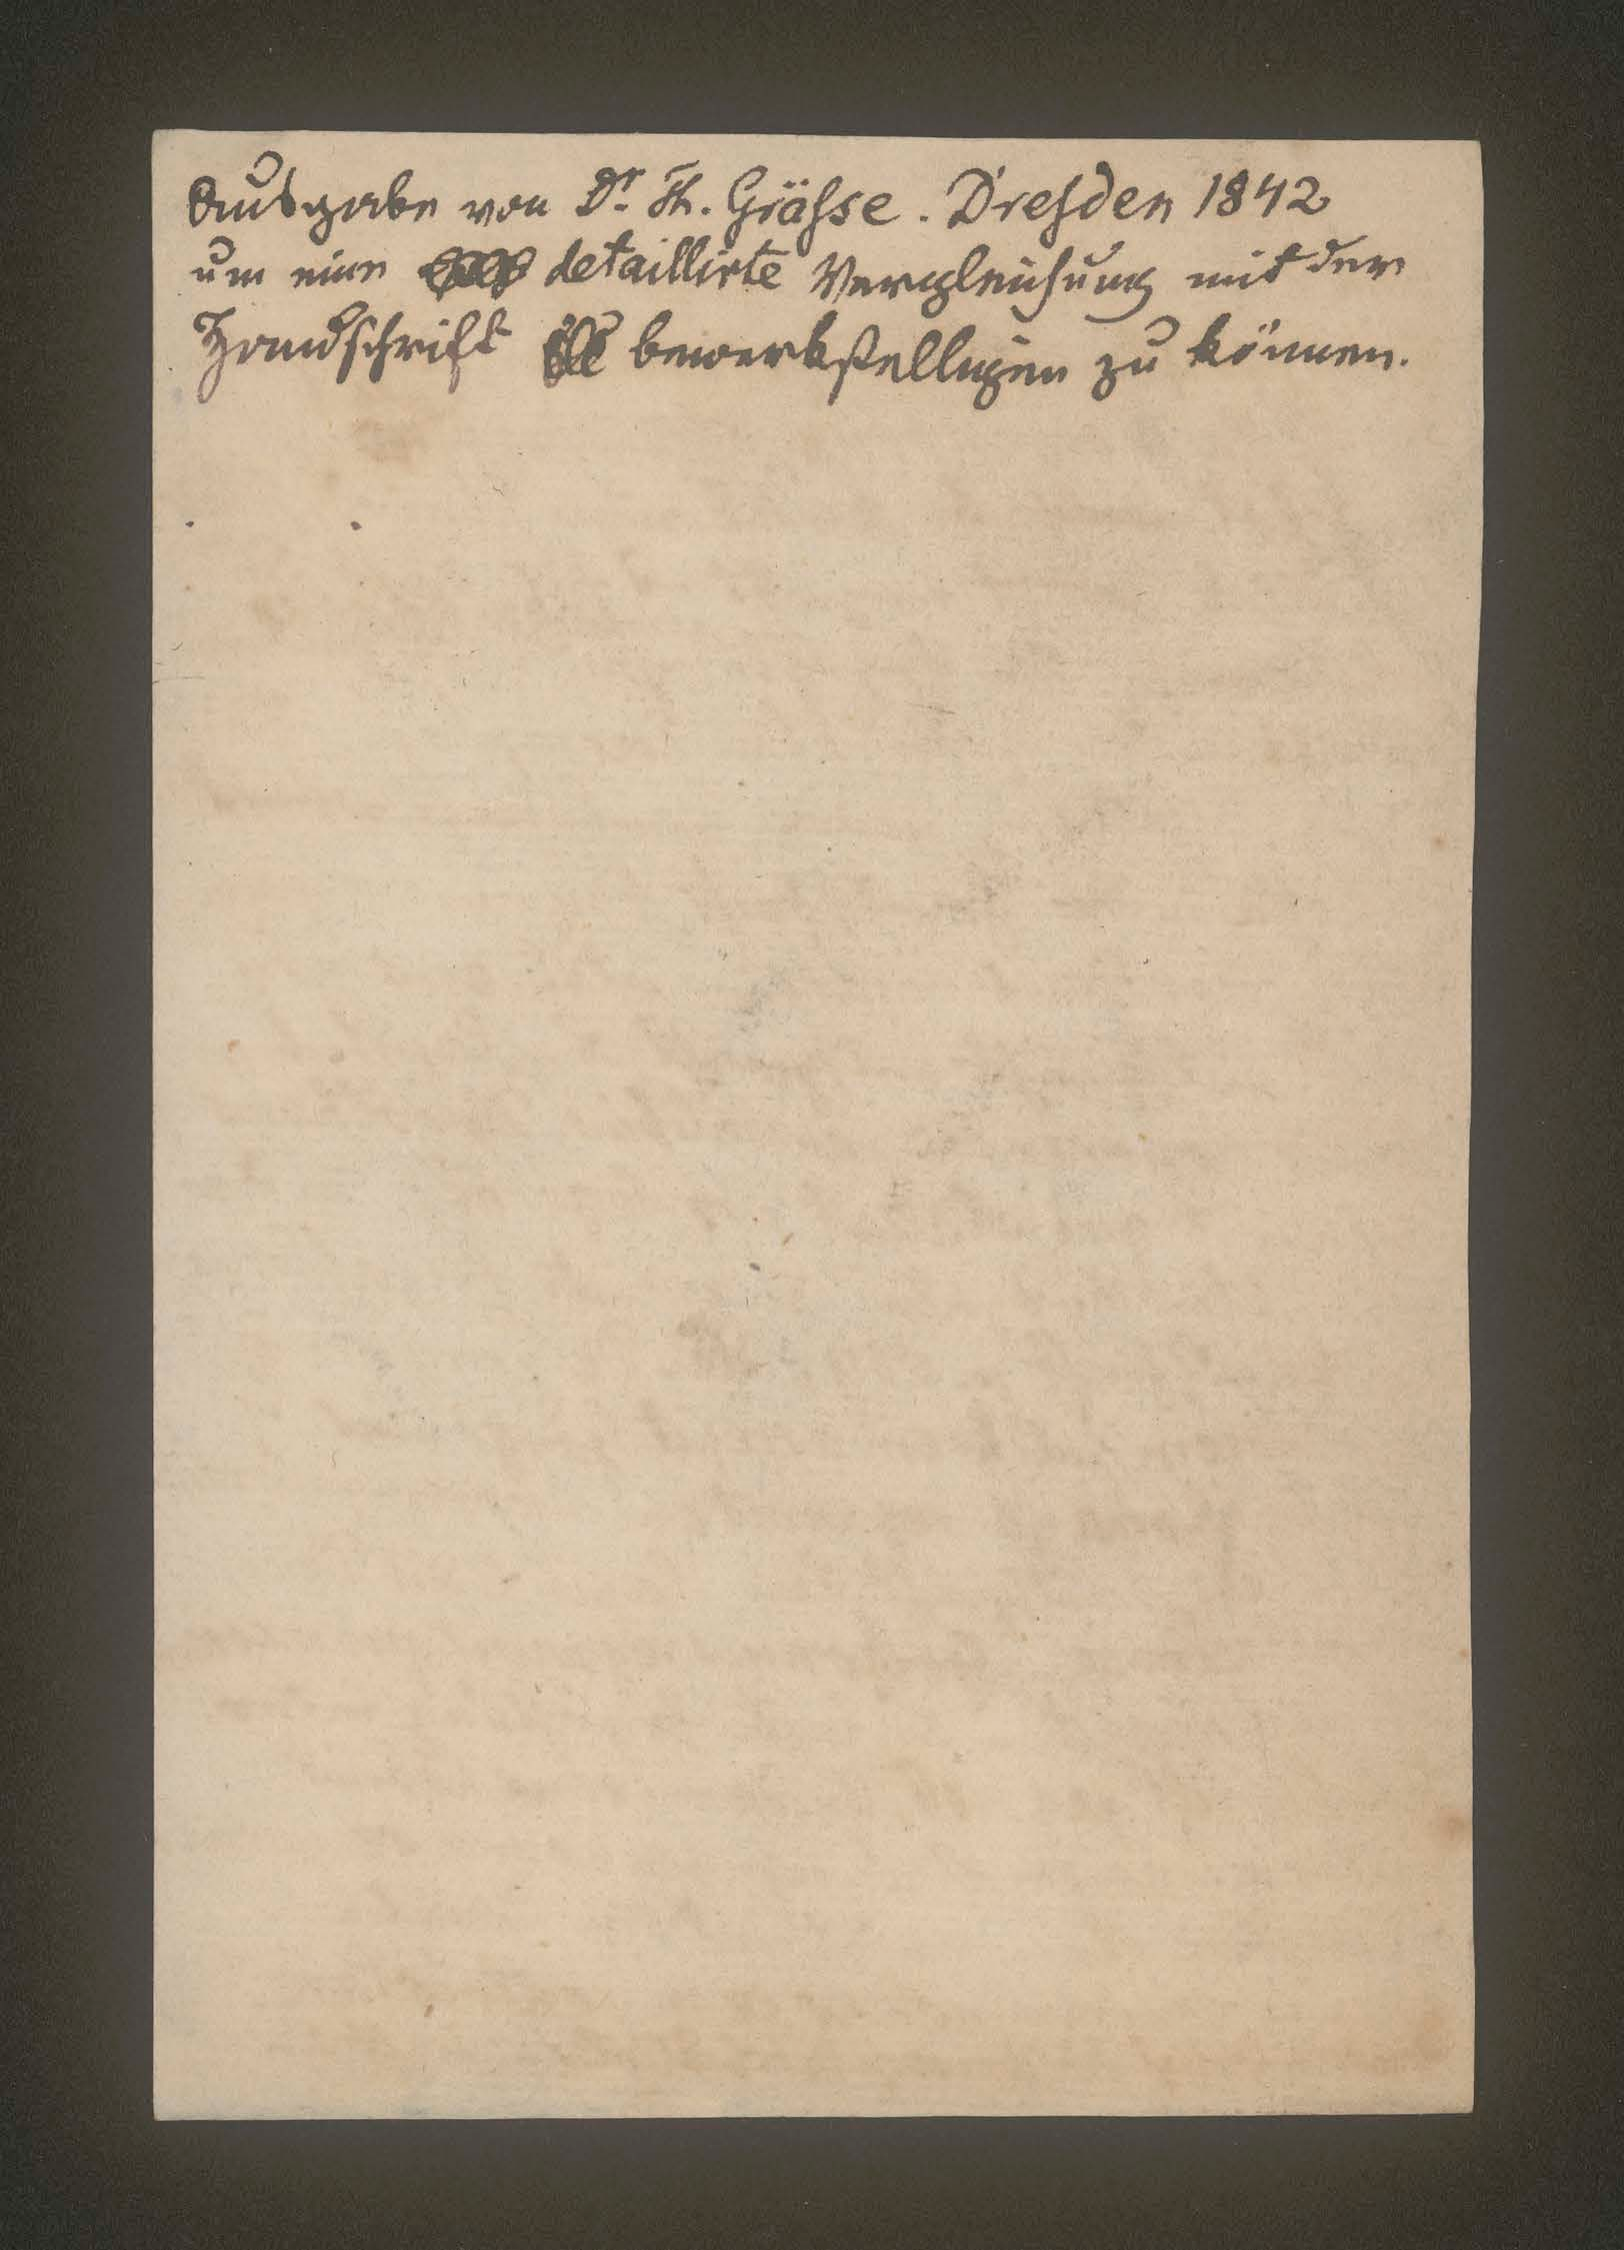 Ausgabe von Dr. Th. Gräſse. Dresden 1842
um eine detaillirte Vergleichung mit der
Handschrift bewerkstelligen zu können.